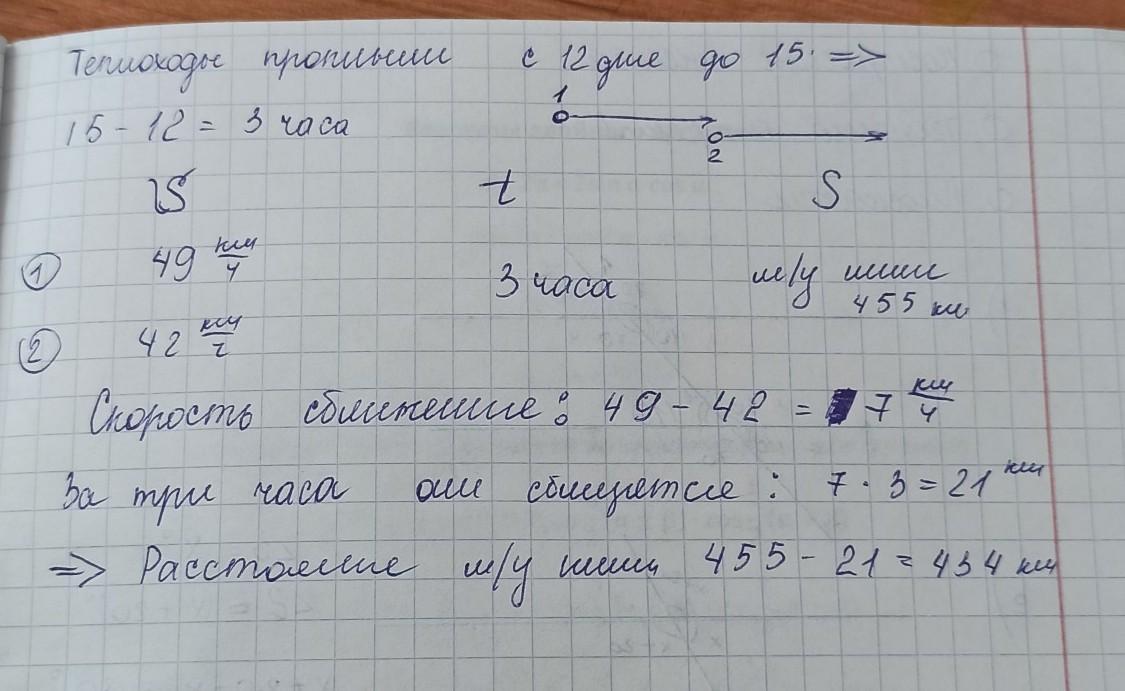 Теплоходы проплыли с 12 дне до 15. =>
1
15 - 12 = 3 часа
2
V t S
1 49 км/ч
3 часа м/у ними
455 км
2 42 км/ч
Скорость сближение: 49 - 42 = 7 км/ч
За три часа они сблизятся: 7 · 3 = 21 км
=> Расстояние м/у ними 455 - 21 = 434 км